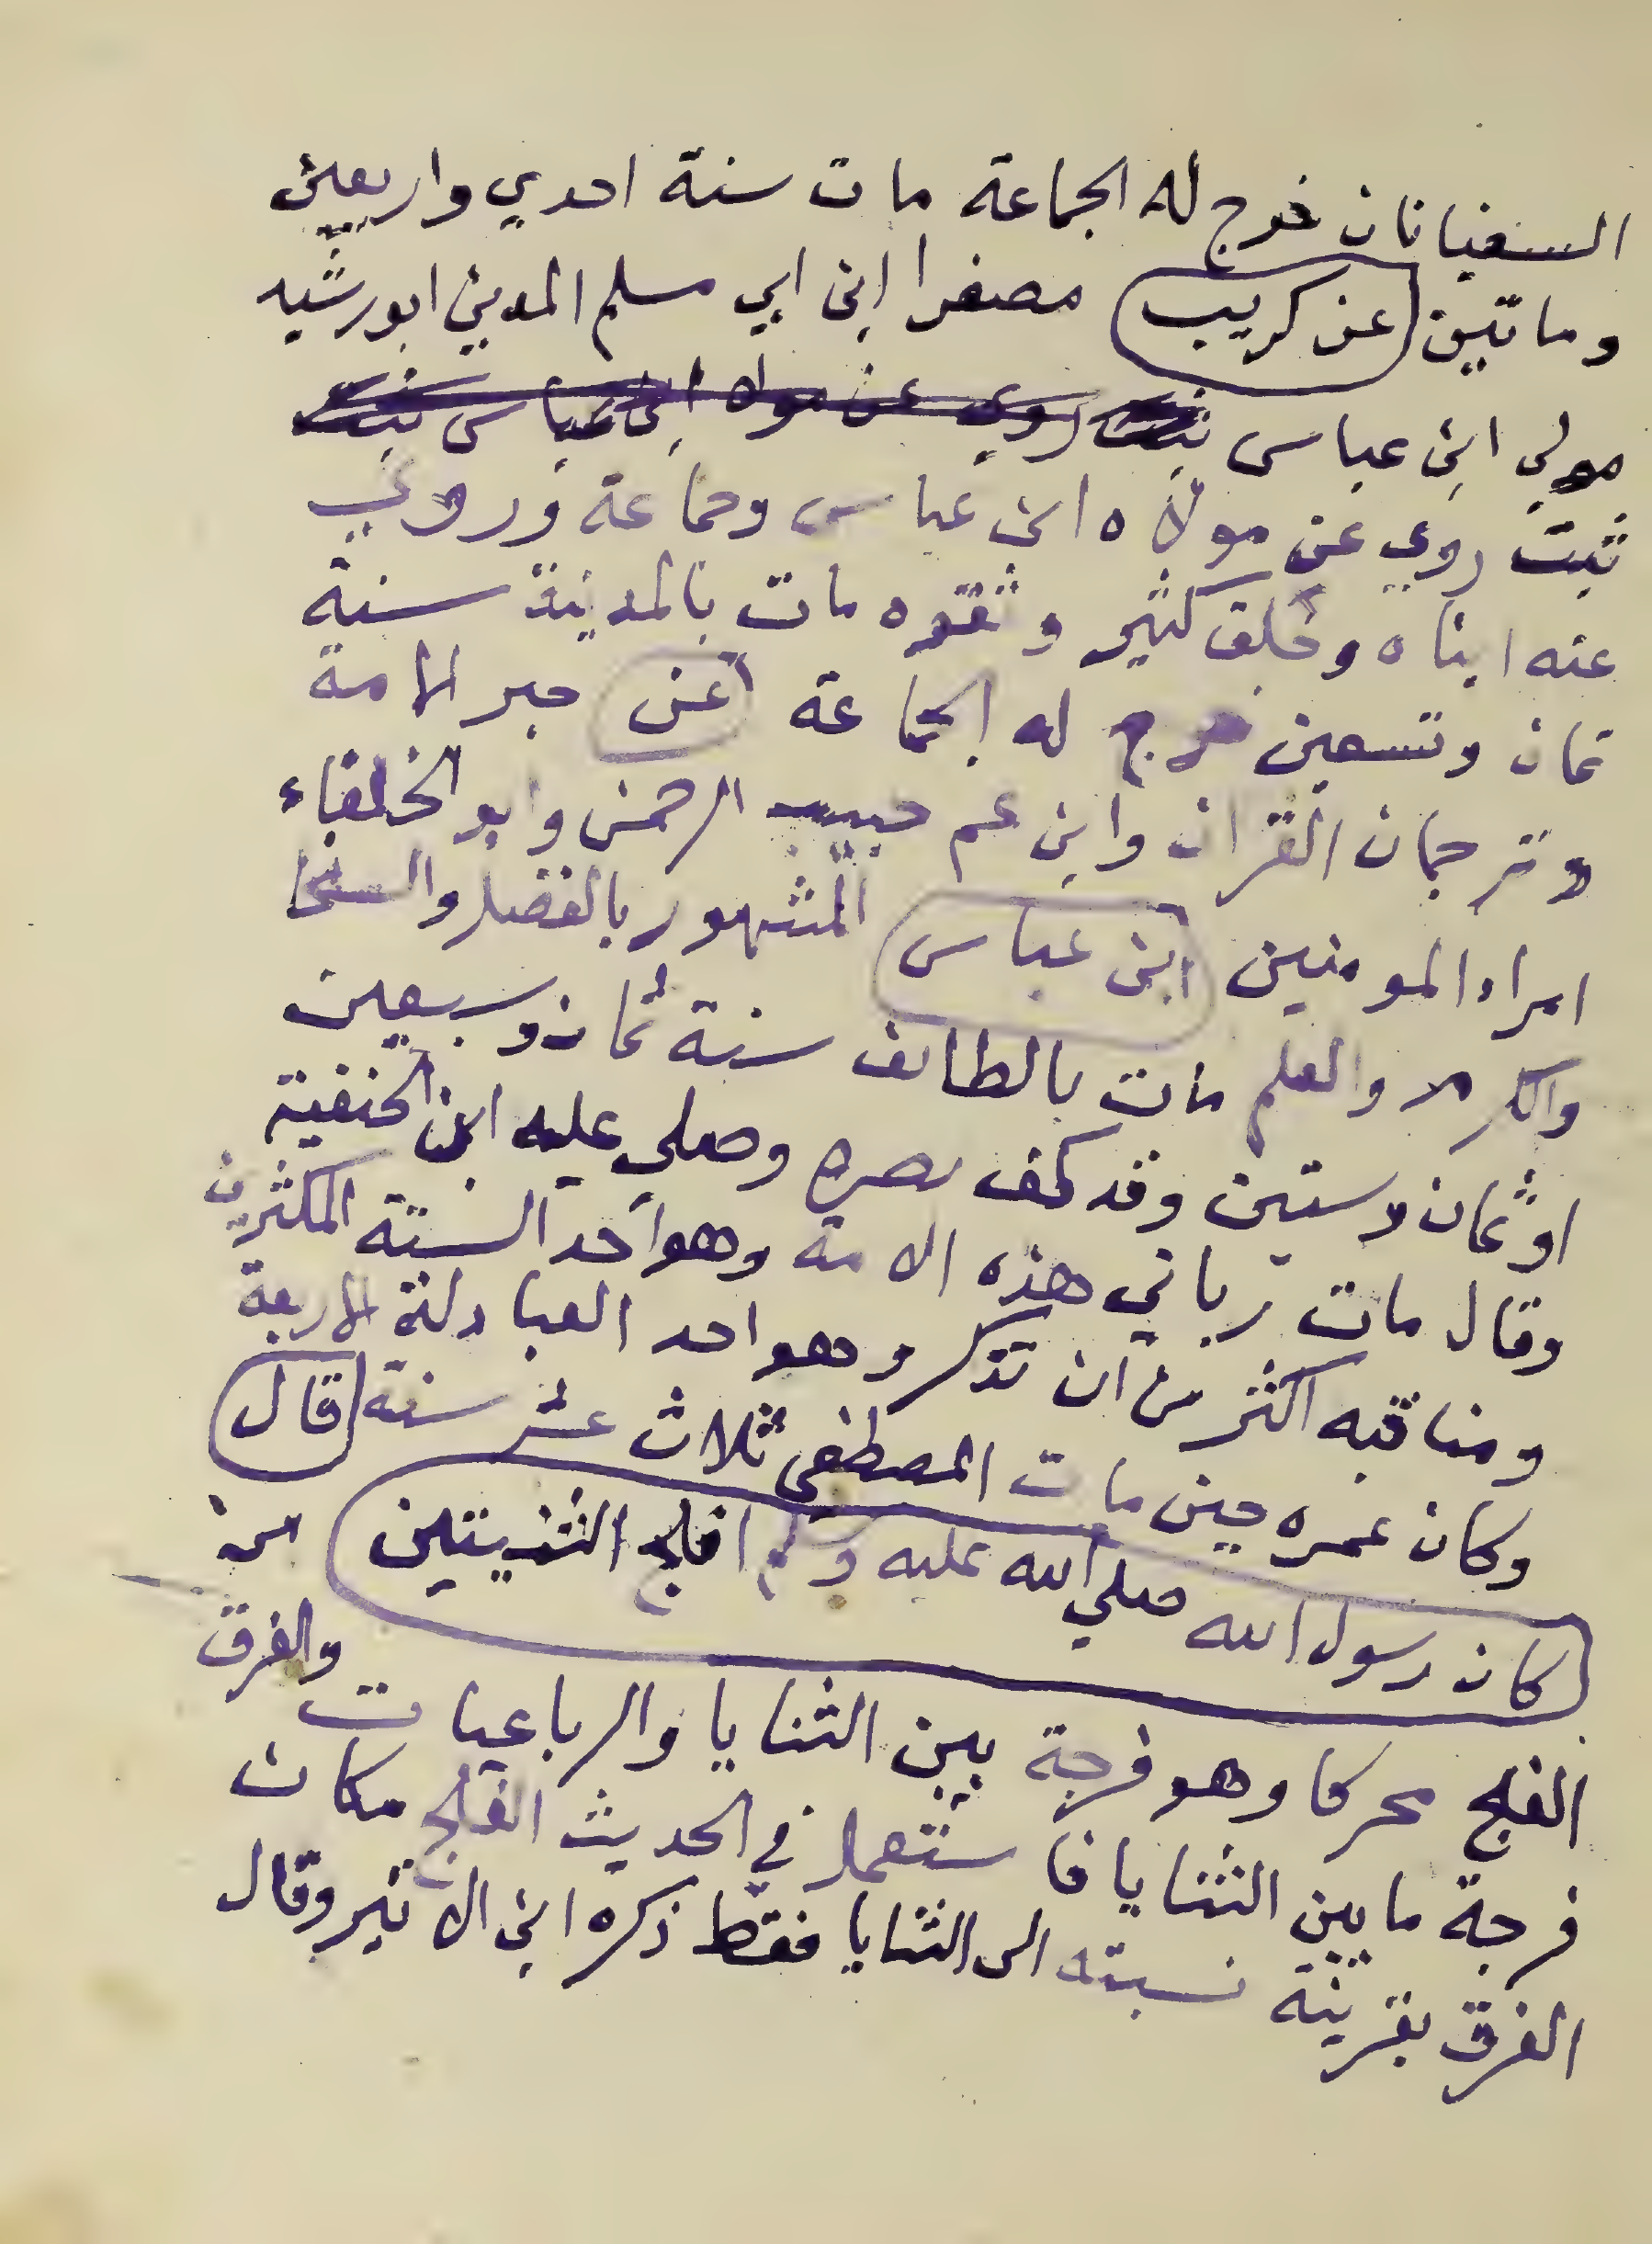 السفيانان خرج له الجماعة مات سنة احدي واربعين
وماتين عن كريب مصغرا ابن ابي مسلم المديني ابو رشيد
مولي ابن عباس ثبت روي عن مولاه ابن عباس ثبت
ثبت روي عن مولاه ابن عباس وجماعة وروي
عنه ابناه وخلق كثير وثقوه مات بالمدينة سنة
ثمان وتسعين خرج له الجماعة عن حبر الامة
وترجمان القران وابن عم حبيب الرحمن وابو الخلفاء
امراء المومنين ابن عباس المشهور بالفضل والسخا
والكرم والعلم مات بالطائف سنة ثمان وسبعين
او ثمان وستين وقد كف بصره وصلي عليه ابن الحنفية
وقال مات رباني هذه الامة وهو احد الستة المكثرين
ومناقبه اكثر من ان تذكر وهو احد العبادلة الاربعة
وكان عمره حين مات المصطفي ثلاث عشر سنة قال
كان رسول الله صلي الله عليه وسلم افلج الثنيتين من
الفلج محركا وهو فرجة بين الثنايا والرباعيات والفرق
فرجة ما بين الثنايا فاستعمل في الحديث الفلج مكان
الفرق بقرينة نسبته الى الثنايا فقط ذكره ابن الاثير وقال